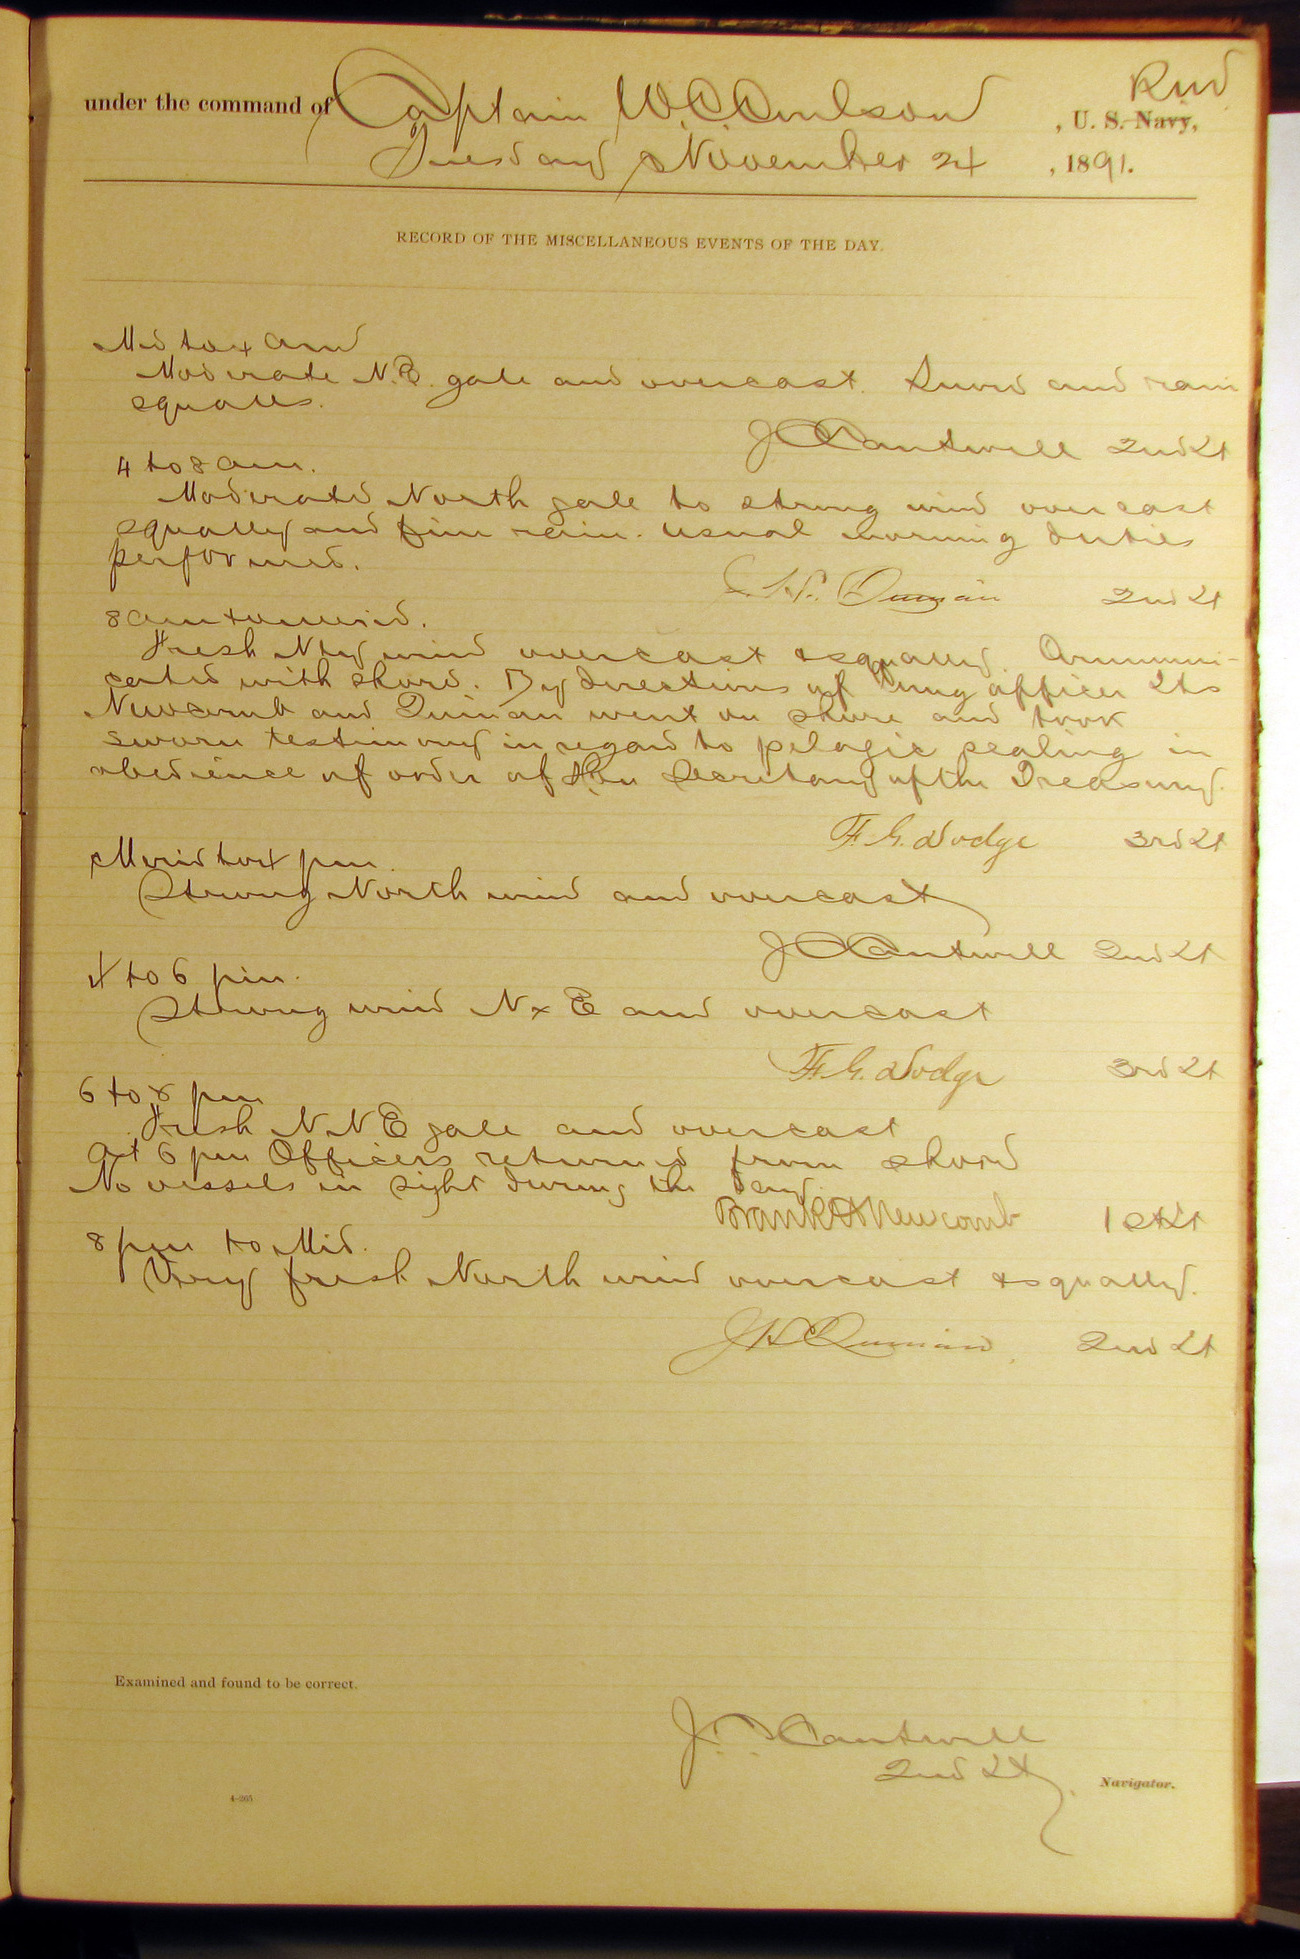 under the command of Captain W.C. Coulson, U. S. Navy, Rev
Tuesday November 24, 1891.
RECORD OF THE MISCELLANEOUS EVENTS OF THE DAY.
Mid to 4 am
Moderate N.E. gale and overcast. Snow and rain
squalls.
J C Cantwell 2nd Lt
4 to 8 am.
Moderate North gale to strong wind overcast
squally and fine rain. Usual morning duties
performed.
J. H. Quinan 2nd Lt
8 am to merid.
Fresh Nly wind overcast & squally. Communi-
cated with shore. By directions of Comg officer Lts
Newcomb and Quinan went on shore and took
sworn testimony in regard to pelagic sealing in
obedience of order of Hon Secretary of the Treasury.
F. G. Dodge 3rd Lt
Merid to 4 pm
Strong North wind and overcast
J C Cantwell 2nd Lt
4 to 6 pm.
Strong wind N x E and overcast
F. G. Dodge 3rd Lt
6 to 8 pm
Fresh N N E gale and overcast
At 6 pm Officers returned from shore
No vessels in sight during the day.
Frank H Newcomb 1st Lt
8 pm to Mid.
Very fresh North wind overcast & squally.
J H Quinan 2nd Lt
Examined and found to be correct.
J. C. Cantwell
2nd Lt, Navigator.
4-265